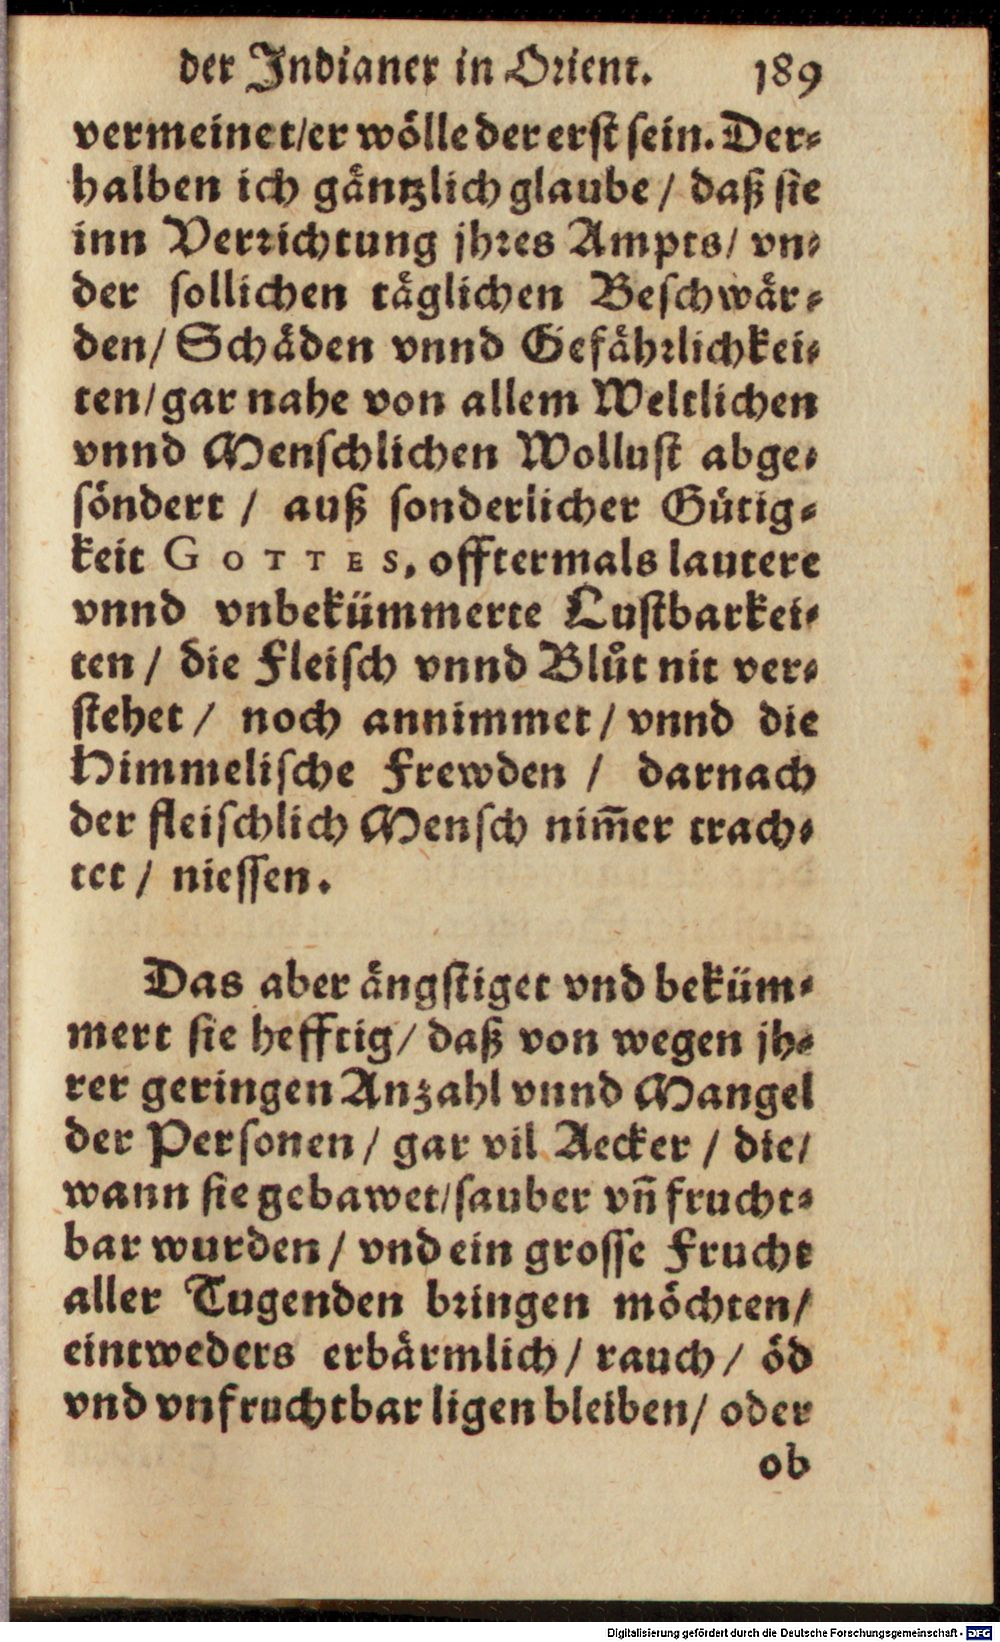 der Indianer in Orient. 189
vermeinet/er wölle der erst sein. Der-
halben ich gäntzlich glaube / daß sie
inn Verrichtung jhres Ampts/ vn-
der sollichen täglichen Beschwär-
den/ Schäden vnnd Gefährlichkei-
ten/gar nahe von allem Weltlichen
vnnd Menschlichen Wollust abge-
söndert / auß sonderlicher Gütig-
keit GOTTES, offtermals lautere
vnnd vnbekümmerte Lustbarkei-
ten / die Fleisch vnnd Blůt nit ver-
stehet / noch annimmet / vnnd die
Himmelische Frewden / darnach
der fleischlich Mensch nim̃er trach-
tet / niessen.
Das aber ängstiget vnd beküm-
mert sie hefftig/ daß von wegen jh-
rer geringen Anzahl vnnd Mangel
der Personen / gar vil Aecker / die/
wann sie gebawet/sauber vñ frucht-
bar wurden / vnd ein grosse Frucht
aller Tugenden bringen möchten/
eintweders erbärmlich / rauch / öd
vnd vnfruchtbar ligen bleiben/ oder
ob
Digitalisierung gefördert durch die Deutsche Forschungsgemeinschaft - DFG